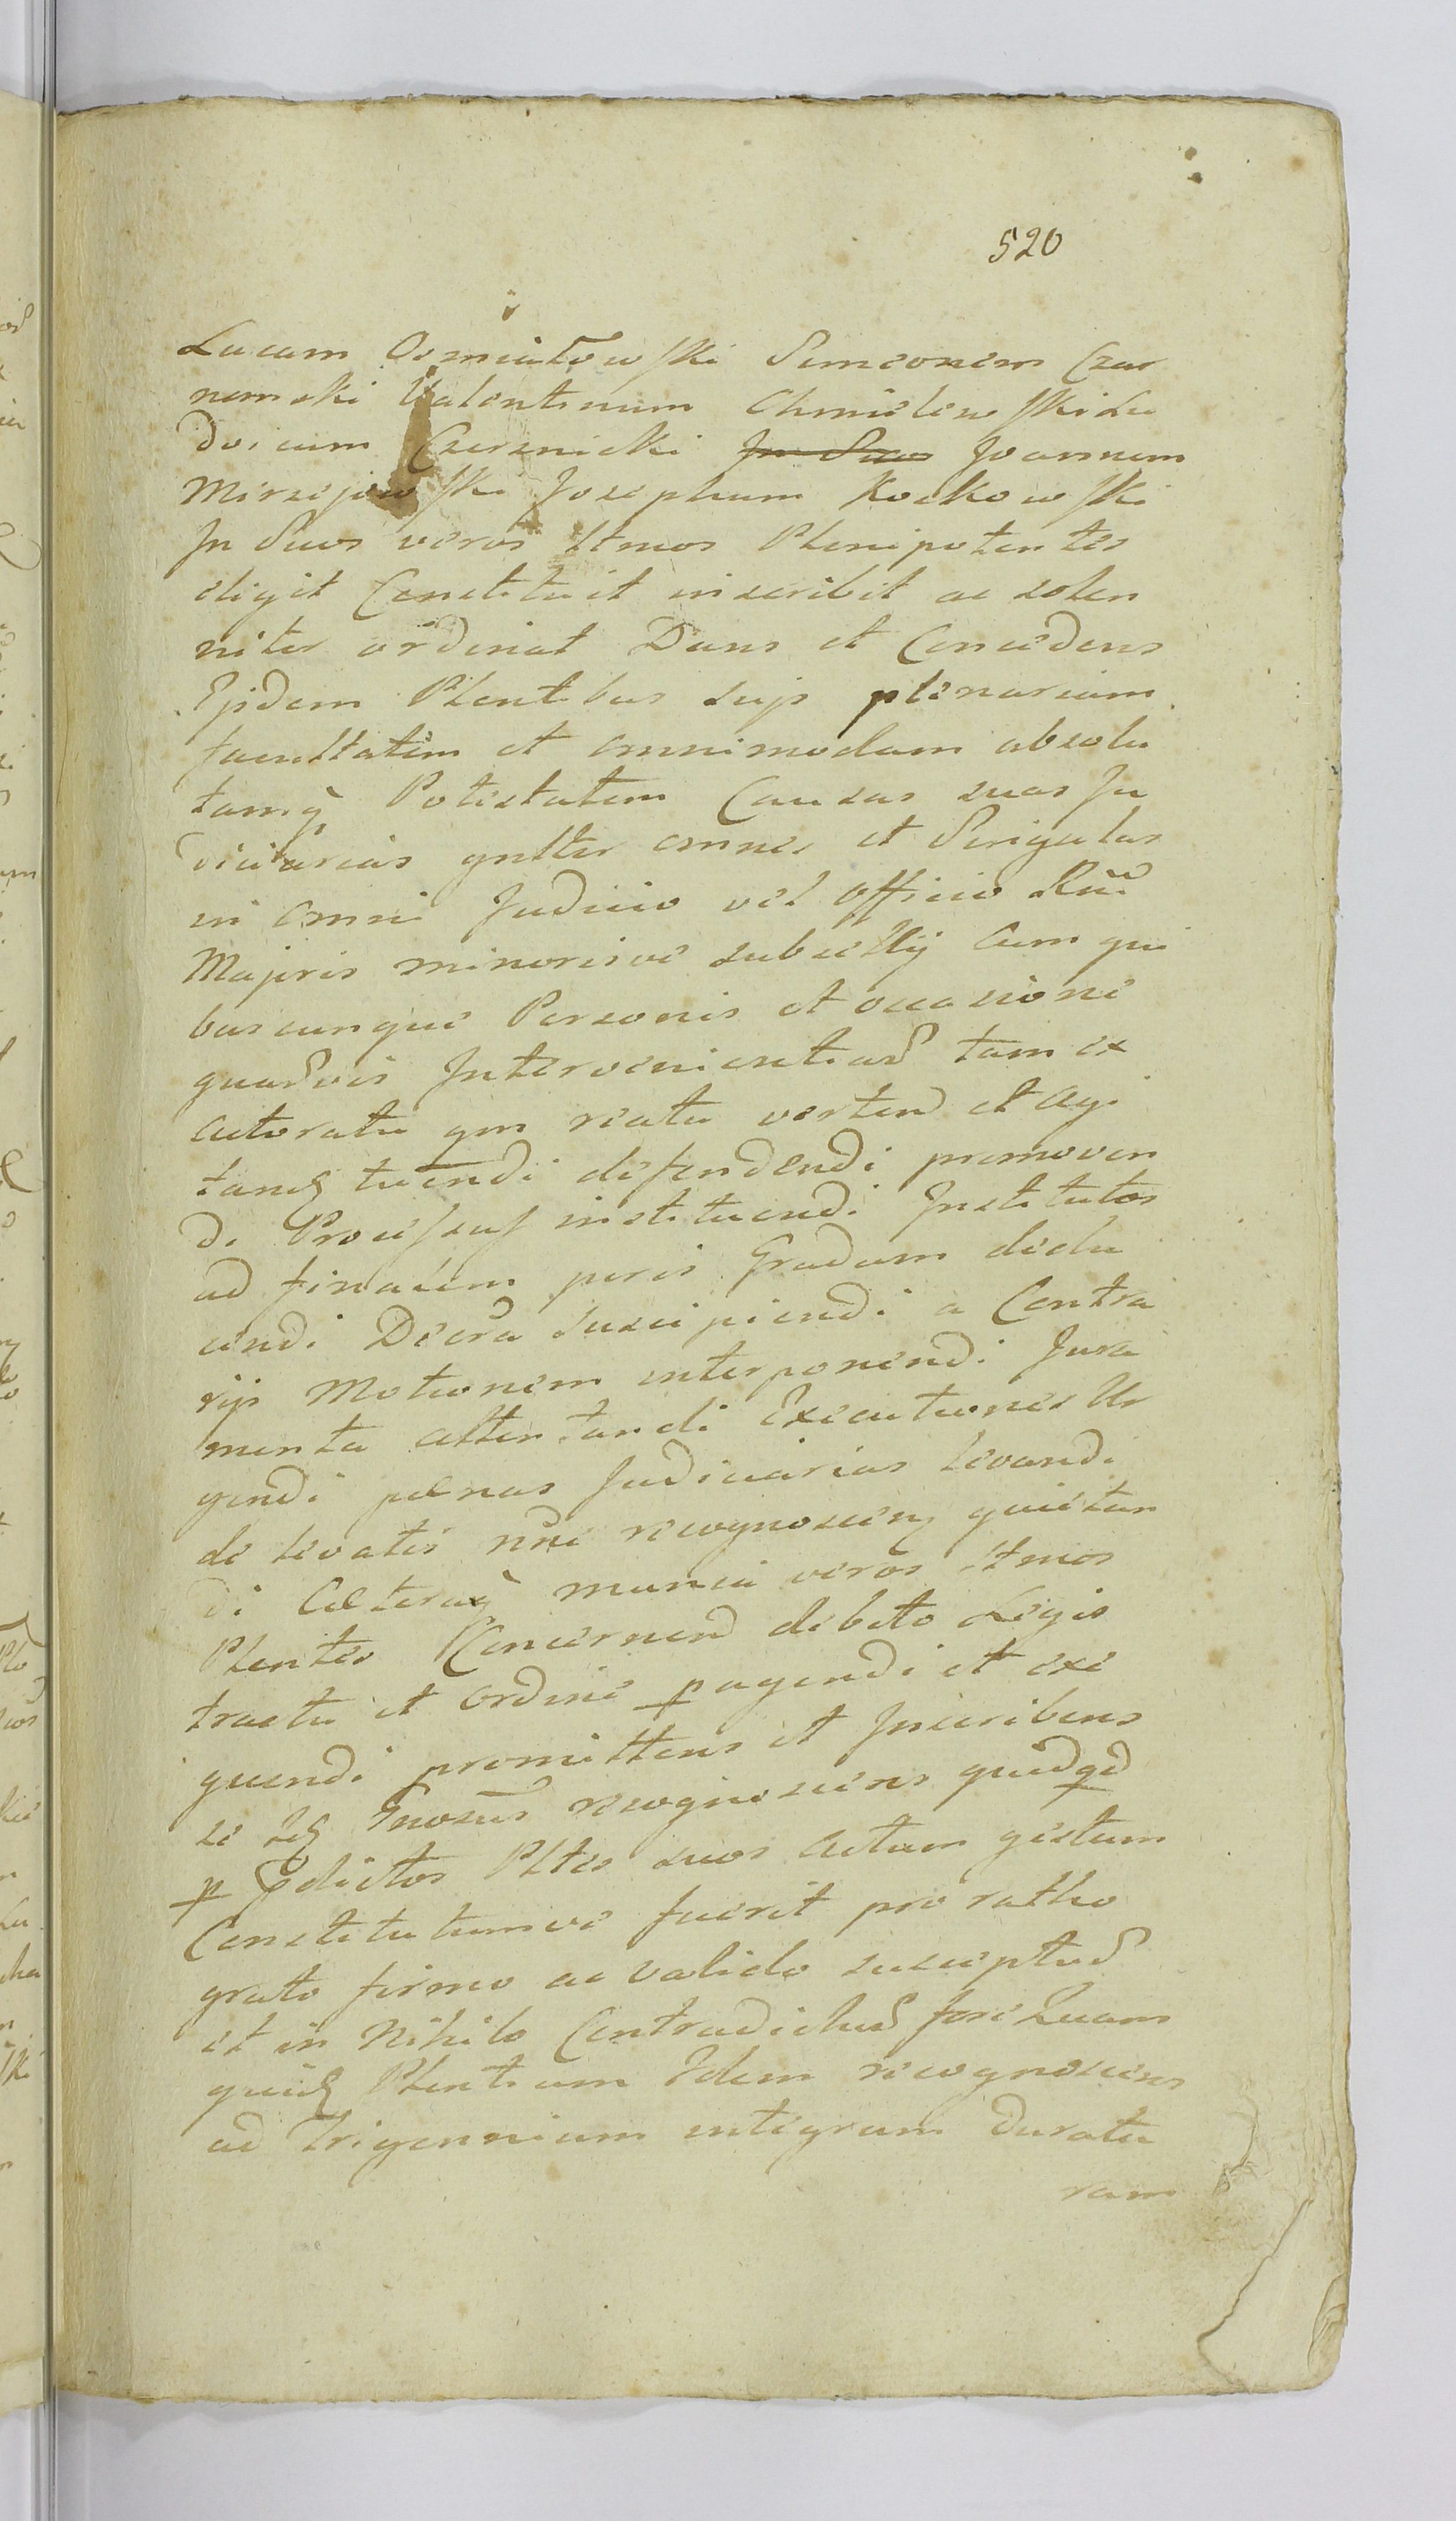 520
Lucam Osmiałowski Simeonem Czar
nomski Valentinum Chmielewski Lu
dvicum Czersnicki In Suos Joannem
Mirzejowski Josephum Kockowski
In Suos veros Ltmos Plenipotentes
eligit Constituit inscribit ac solen
niter ordinat Dans et Concedens
Ejsdem Plentibus suijs plenariam
facultatem et omnimodam absolu
tamq Potestatem Causas suas Ju
diciarias gnlter omnes et Singulas
in omni Judicio vel Officio Rni
Majoris minorisve subsellij cum qui
buscunque Personis et occasione
quarvis Intervenientiar tam ex
actoratu qm reatu verten et agi
tan tuendi defendendi promoven
di Processus instituendi Institutos
ad finalem juris Gradum dedu
cendi Decra suscipiendi a Contra
rijs Motionem interponendi Jura
menta attentandi Executiones Ur
gendi pænas Judiciarias levandi
de levatis nne recognoscen quietan
di Cæteraq munia veros Ltmos
Plentes Concernen debito Legis
tractu et ordine pagendi et exe
quendi promittens et Inscribens
se recognoscens quidqd
p pdictos Pltes suos actum gestum
Constitutumve fuerit pro ratho
grato firmo ac valido suscepturᵈ
et in Nihilo Contradicturᵈ fore Quam
quid Plentium Idem recognoscens
ad Trigennium integrum duratu
ram